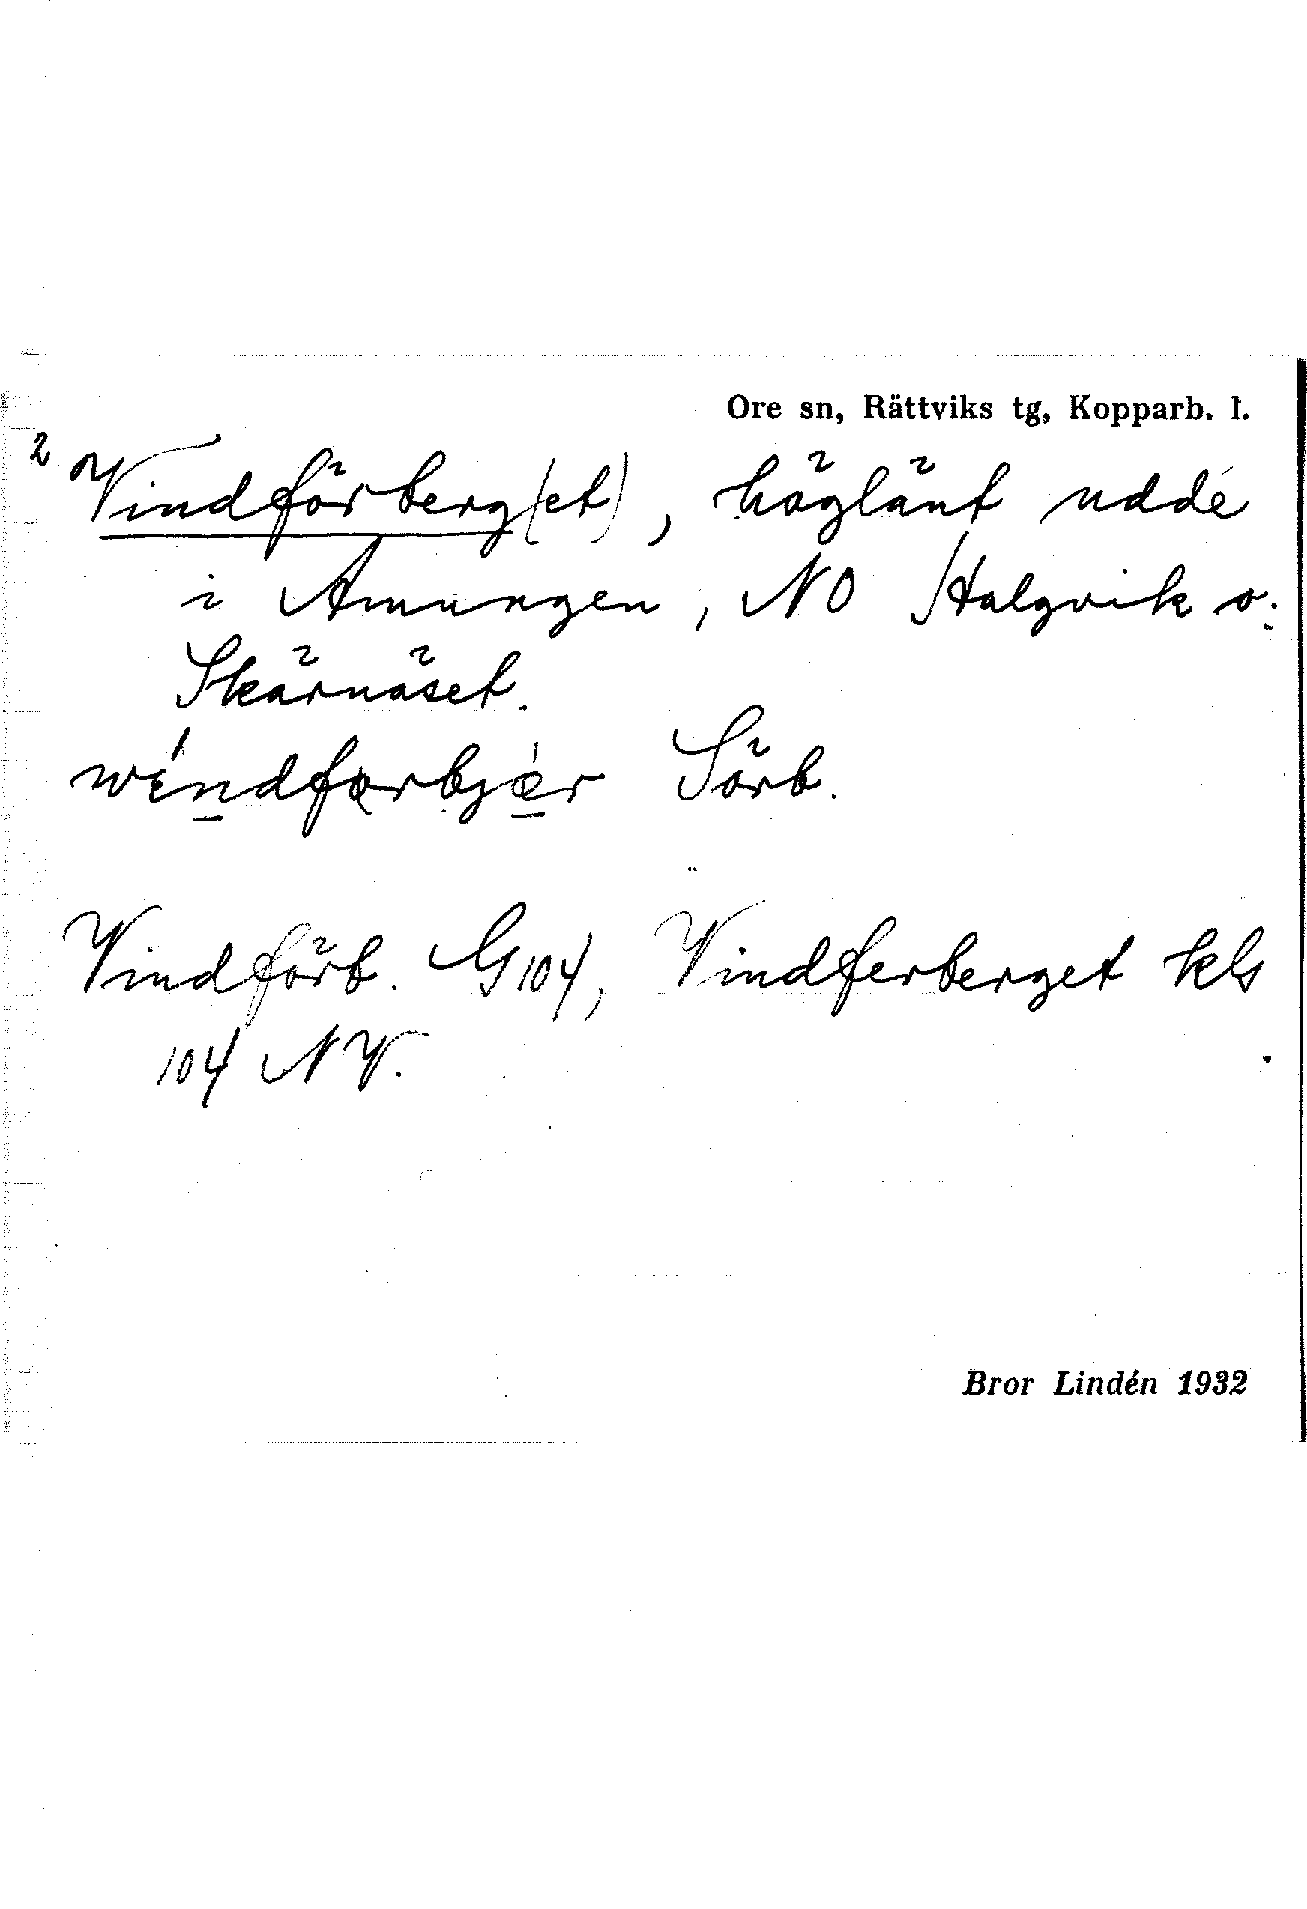 Ore sn, Rättviks tg, Kopparb. l.
2 Vindförberg(et), höglänt udde
i Amungen, NO Halgvik o.
Skärnäset.
wíndfərbjèr Sörb.
Vindförb. G 104, Vindferberget kls
104 NV.
Bror Lindén 1932